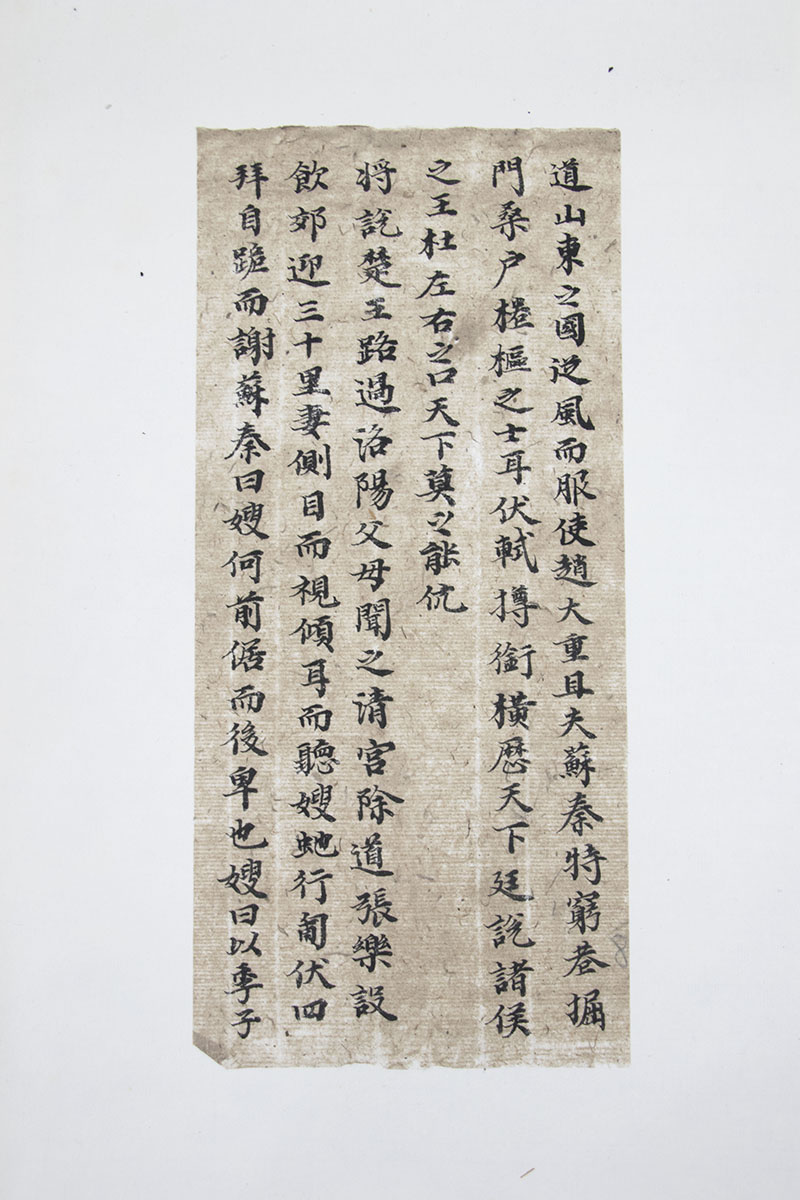 道山東之國從風而服使趙大重且夫蘇秦特窮巷掘
門桑户棬樞之士耳伏軾撙銜橫歷天下廷說諸侯
之王杜左右之口天下莫之能伉
將說楚王路過洛陽父母聞之清宮除道張樂設
飲郊迎三十里妻側目而視傾耳而聽嫂虵行匍伏四
拜自跪而謝蘇秦曰嫂何前倨而後卑也嫂曰以季子
8